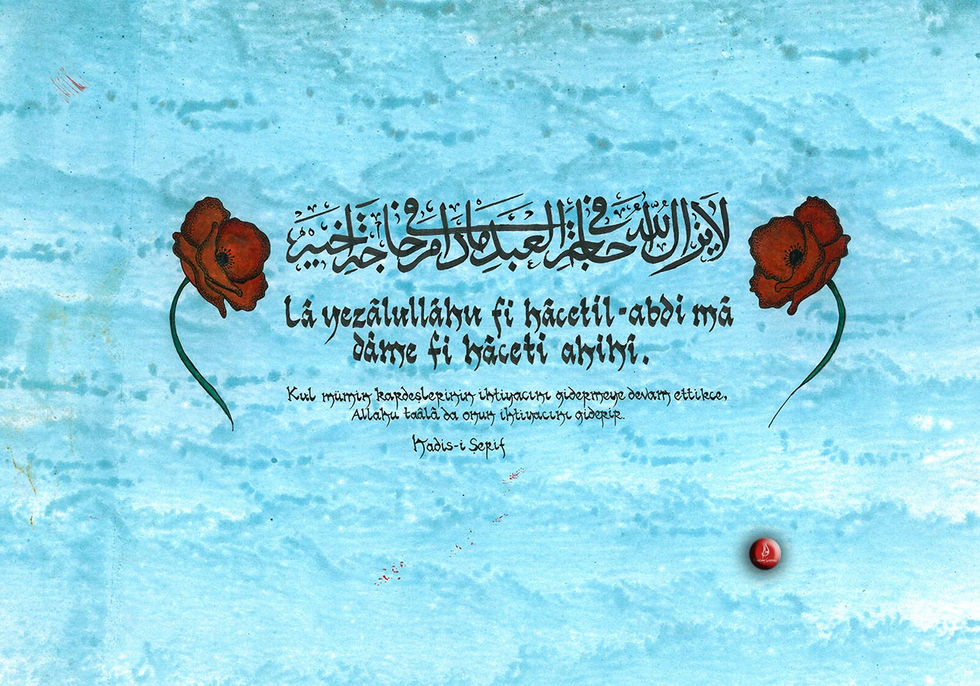 لا يزال الله في حاجة العبد مادام في حاجة اخيه
Lâ yezâlullâhu fi hâcetil-abdi mâ
dâme fi hâceti ahihi.
Kul mümin kardeşlerinin ihtiyacını gidermeye devam ettikçe,
Allahu taâlâ da onun ihtiyacını giderir.
Hadis-i Şerif